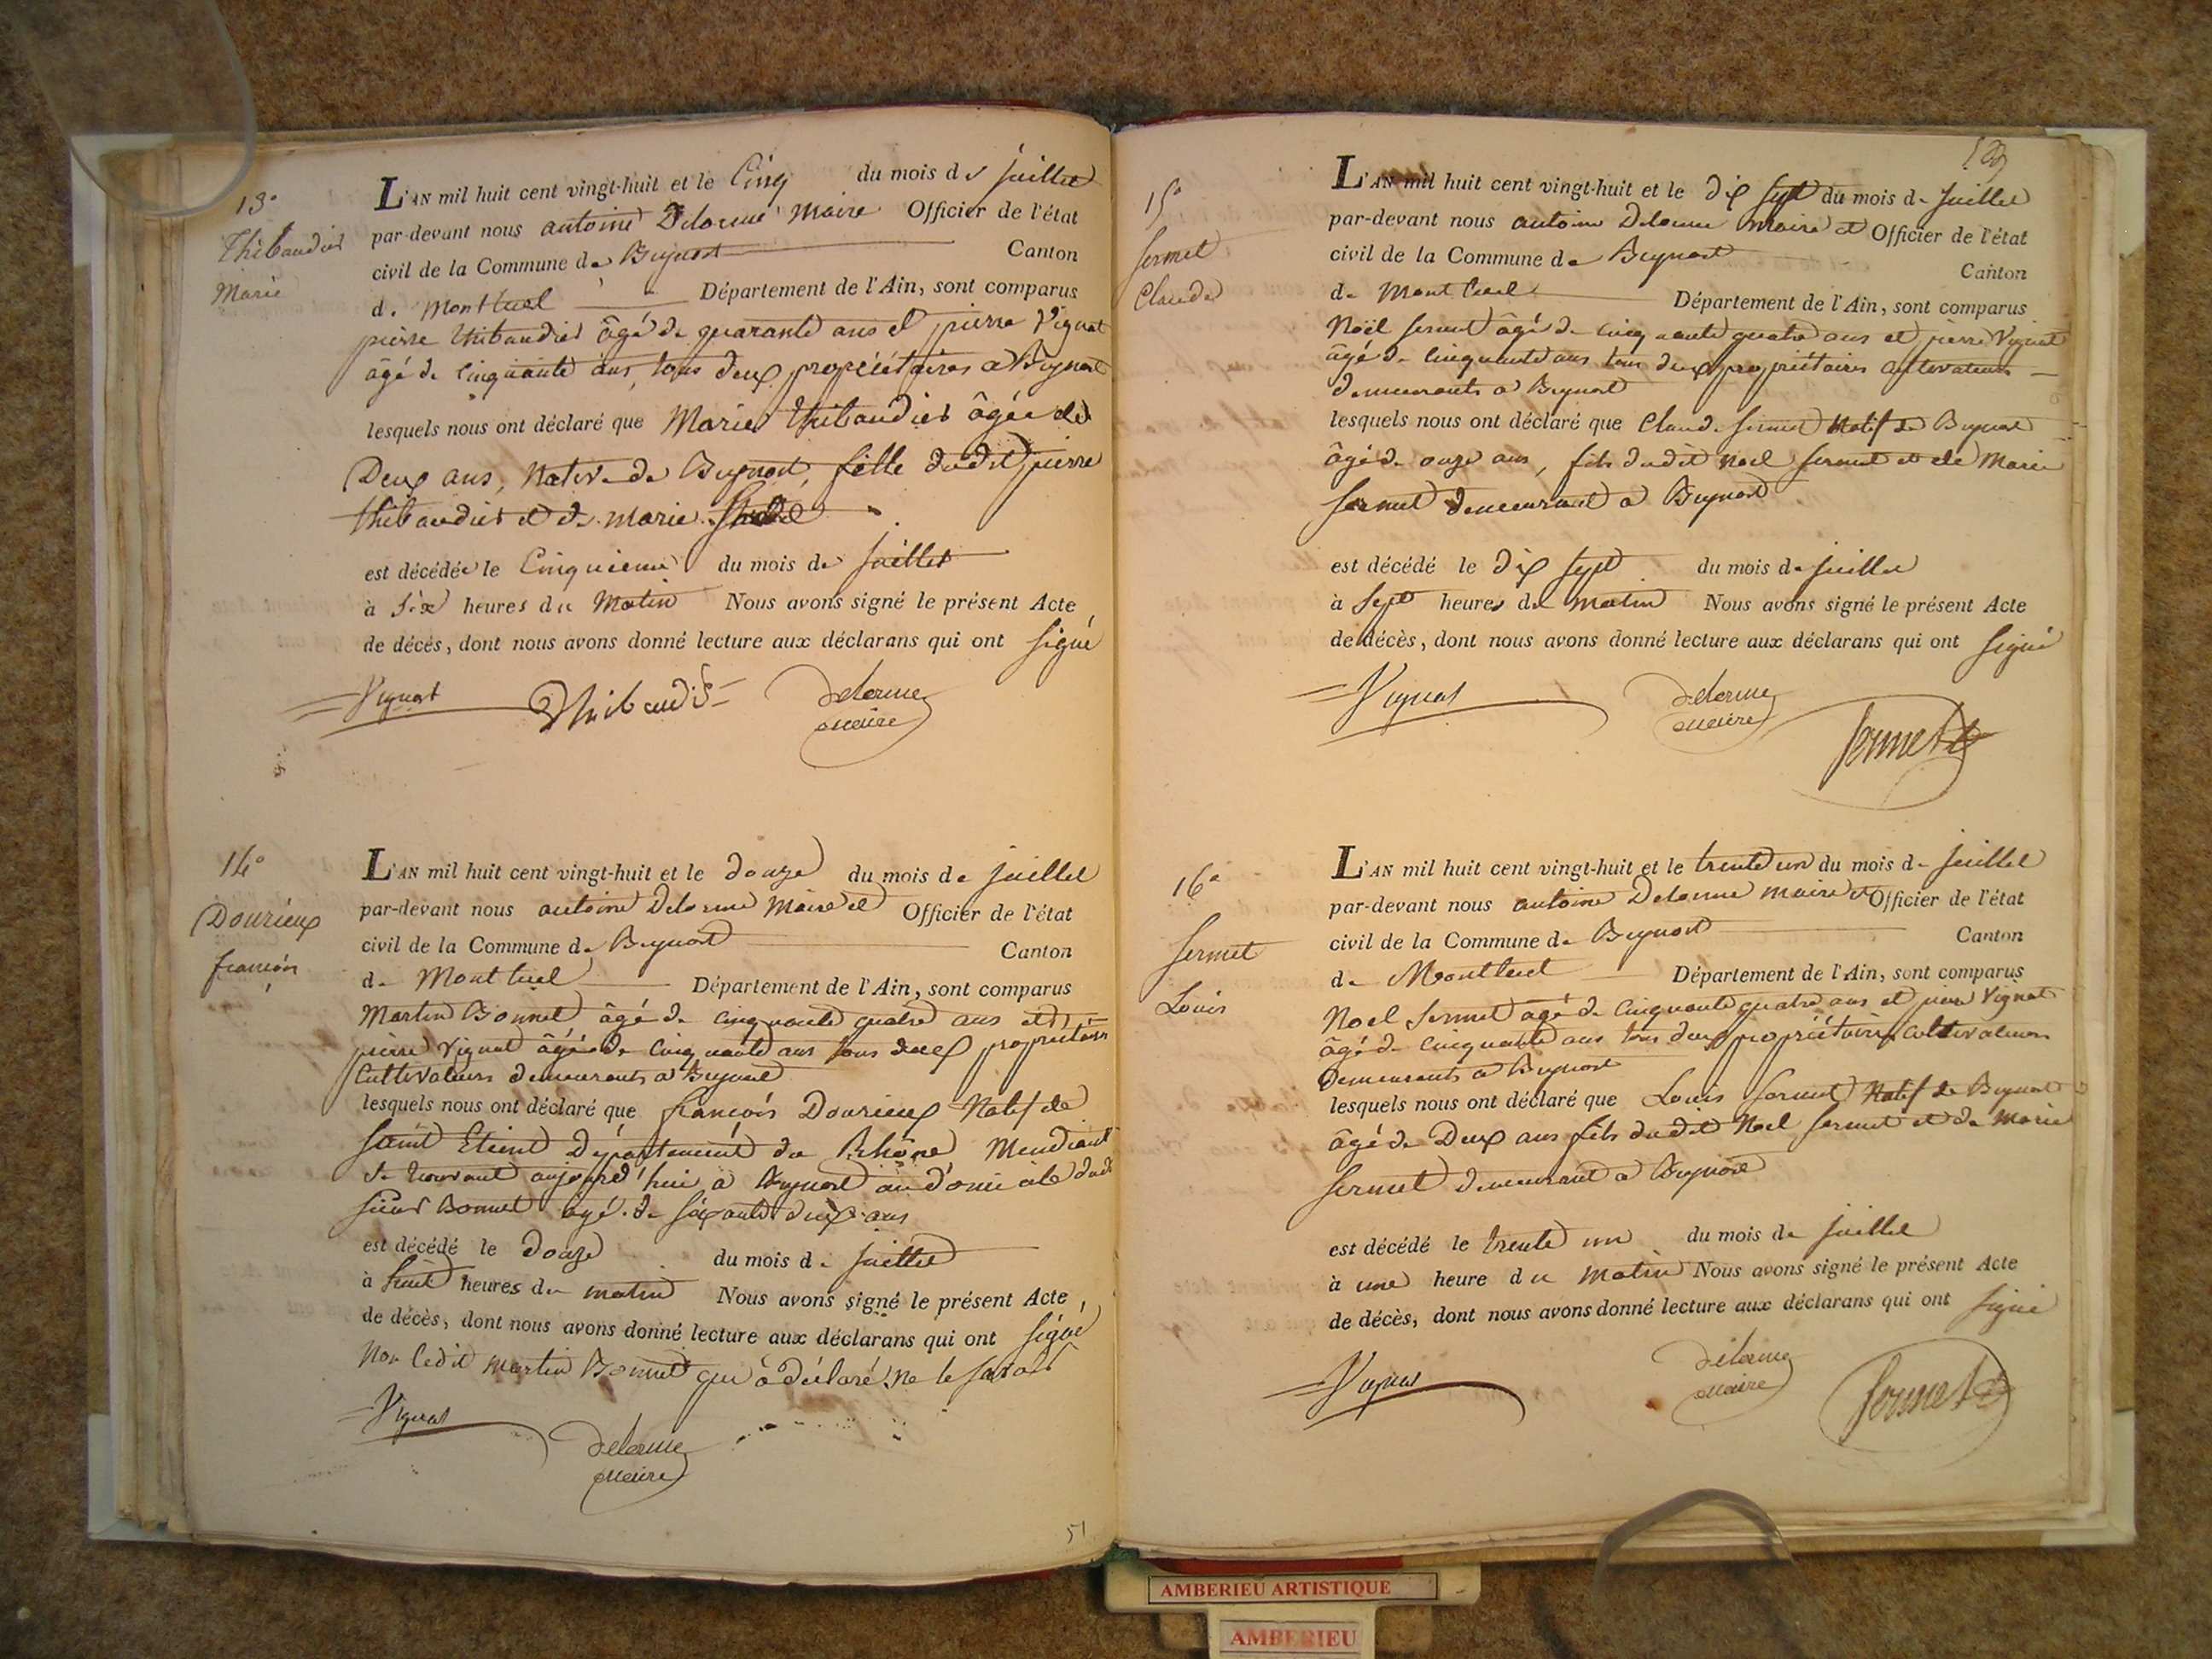 13°
Thibaudier
Marie
L'AN mil huit cent vingt-huit et le Cinq du mois de juillet
par-devant nous antoine Delorme Maire Officier de l'état
civil de la Commune de Beynost Canton
de Montluel Département de l'Ain, sont comparus
pierre thibaudier âgé de quarante ans et pierre Vignat
âgé de Cinquante ans, tous deux propriétaires a Beynost
lesquels nous ont déclaré que Marie thibaudier âgée de
Deux ans, Native de Beynost, fille dudit pierre
thibaudier et de marie
est décédée le Cinquieme du mois de juillet
à Six heures du Matin Nous avons signé le présent Acte
de décès, dont nous avons donné lecture aux déclarans qui ont signé
Vignat Thibaudier Delorme
maire
14°
Dourieux
francois
L'AN mil huit cent vingt-huit et le douze du mois de juillet
par-devant nous antoine Delorme Maire et Officier de l'état
civil de la Commune de Beynost Canton
de Montluel Département de l'Ain, sont comparus
Martin Bonnet âgé de cinquante quatre ans et
pierre Vignat âgé de Cinquante ans tous deux propriétaires
Cultivateurs demeurants a Beynost
lesquels nous ont déclaré que francois Dourieux Natif de
Saint Etient Département du Rhône Mendiant
se trouvant aujourd'hui a Beynost au domicile dudt
sieur Bonnet agé de soixante deux ans
est décédé le douze du mois de juillet
à huit heures du matin Nous avons signé le présent Acte
de décès, dont nous avons donné lecture aux déclarans qui ont signé
Non ledit martin Bonnet qui a déclaré ne le savoir
Vignat Delorme
maire
51
15°
Sermet
Claude
L'AN mil huit cent vingt-huit et le dix sept du mois de juillet
par-devant nous antoine Delorme Maire et Officier de l'état
civil de la Commune de Beynost Canton
de Montluel Département de l'Ain, sont comparus
Noël Sermet âgé de cinquante quatre ans et pierre Vignat
âgé de Cinquante ans tous deux propriétaires cultivateurs
demeurants a Beynost
lesquels nous ont déclaré que Claude Sermet Natif de Beynost
âgé de onze ans, fils dudit Noel Sermet et de Marie
Sermet demeurant a Beynost
est décédé le dix sept du mois de juillet
à Sept heures du matin Nous avons signé le présent Acte
de décès, dont nous avons donné lecture aux déclarans qui ont signé
Vignat Delorme
maire
Sermet
16°
Sermet
Louis
L'AN mil huit cent vingt-huit et le trente un du mois de juillet
par-devant nous antoine Delorme maire et Officier de l'état
civil de la Commune de Beynost Canton
de Montluel Département de l'Ain, sont comparus
Noel Sermet agé de Cinquante quatre ans et pierre Vignat
âgé de Cinquante ans tous deux propriétaires cultivateurs
Demeurants a Beynost
lesquels nous ont déclaré que Louis Sermet Natif de Beynost
âgé de Deux ans fils dudit Noel Sermet et de Marie
Sermet demeurant a Beynost
est décédé le trente un du mois de juillet
à une heure du matin Nous avons signé le présent Acte
de décès, dont nous avons donné lecture aux déclarans qui ont signé
Vignat Delorme
maire Sermet
AMBERIEU ARTISTIQUE
AMBERIEU